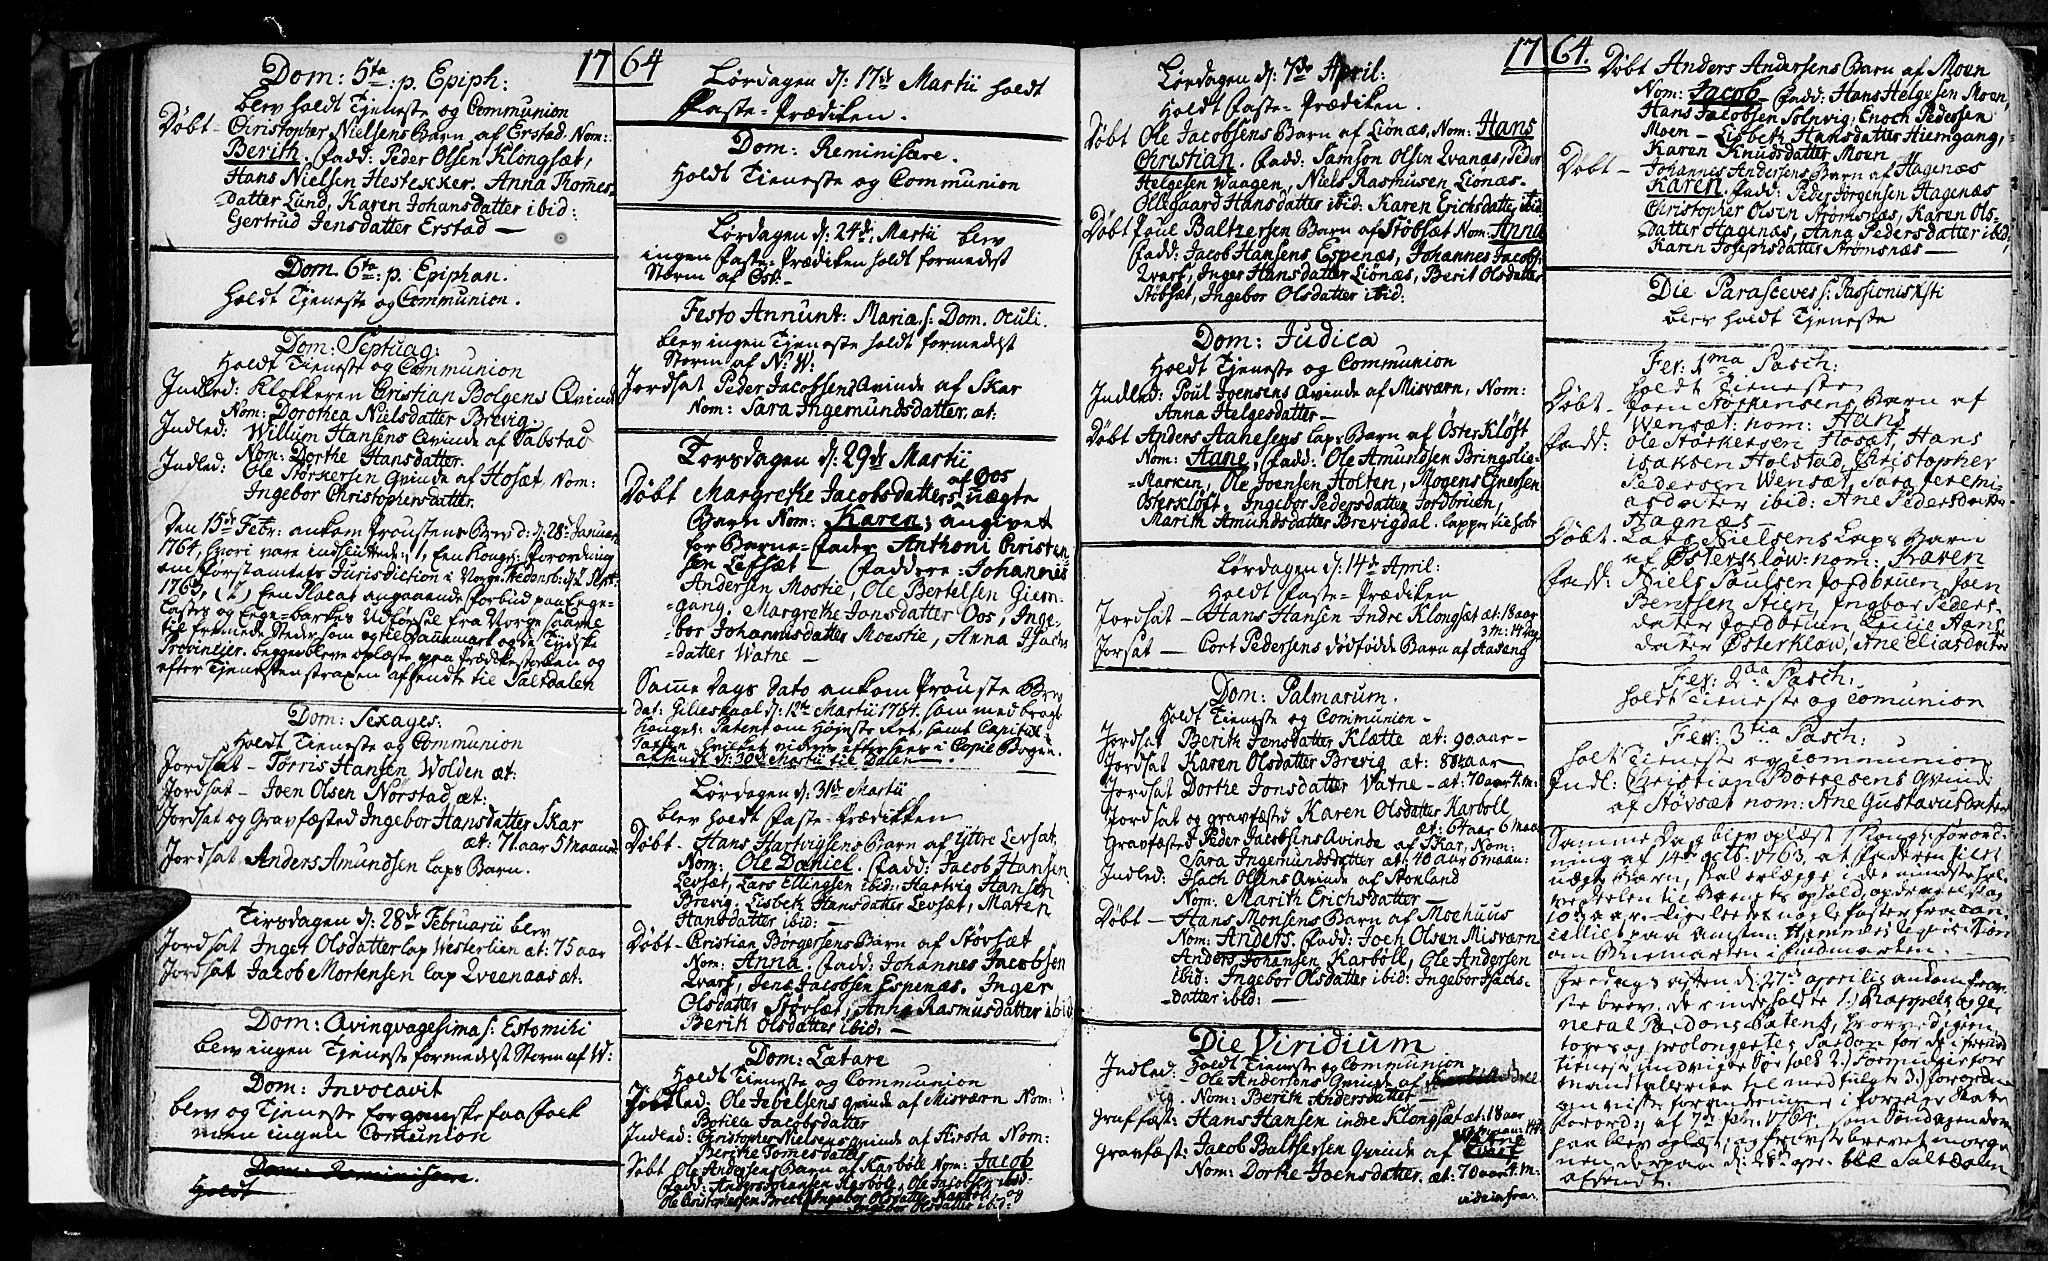 17 64
Dom: 5ta p. Epiph:
blev holdt Tjeneste og Communion
Døbt - Christopher Nielsens Barn af Erstad. Nom:
Berith. fadd: Peder Olsen Klongsæt,
Hans Nielsen Hestekker. Anna Thomes
datter Lund, Karen Johansdatter ibid:
Gertrud Jensdatter Erstad —
Dom. 6ta p. Epiphan.
holdt Tjeneste og Communion.
Dom: Septuag:
Holdt Tjeneste og Communion
Indled: Klokkeren Christian Bolgens Qvinde
Nom: Dorothea Nielsdatter Brevig.
Indled: Willum Hansens Qvinde af Tabstad
Nom: Dorthe Hansdatter.
Indled: Ole Størkersen Qvinde af Hosæt, Nom:
Ingebor Christophersdatter.
Den 15de Febr: ankom Proustens Brev d: d: 28de Januar
1764, hvori vare indsluttede: 1, Een Kongl: Forordning
om Forstamtets Jurisdiction i Norge. Fredensb: d: 2 Sept:
1763, (2) Een Placat angaaende Forbud paa Eege-
Lastes og Eege-barkes Udførsel fra Norge saavel
til fremede Steder som og til Dannemark og de Tydske
Provincier. begge bleve oplæste paa Prædikestoelen og
efter Tjenesten straxen affendte til Saltdalen
Dom: Sexages:
Holdt Tieneste og Communion
Jordsat - Tørris Hansen Wolden æt:
Jordsat - Joen Olsen Nørstad æt:
Jordsat og Gravfæsted Ingebor Hansdatter Skar
æt: 71 aar 5 maaned
Jordsat Anders Amundsen laps Barn.
Tirsdagen d: 28de Februarii blev
Jordsat Inger Olsdatter lap Westerlien æt: 75 aar
Jordsat Jacob Mortensen lap Qveenaas æt:
Dom: Qvinqvagesima s: Estomihi
blev ingen Tjeneste formedelst Storm af W:
Dom: Invocavit
blev og Tjeneste for ganske faa folk
men ingen Com̄union
Dom: Reminiscere.
Holdt
Lørdagen d: 17de Martii holdt
Faste-Prædiken.
Dom: Reminisere.
Holdt Tieneste og Communion
Lørdagen d: 24de Martii blev
ingen Faste-Prædiken holdt formedelst
Storm af Ost. -
Festo Annunt: Mariæ s: Dom. Oculi.
blev ingen Tjeneste holdt formedelst
Storm af N: W:
Jordsat Peder Jacobsens Qvinde af Skar
Nom: Sara Ingemundsdatter. æt:
Torsdagen d: 29de Martii
Døbt Margrethe Jacobsdatters af Oos uægte
Barn Nom: Karen; angivet
for Barne-fader Anthoni Christen
sen Lefsæt — faddere: Johannis
Andersen Mostie, Ole Bertelsen Giem-
gang, Margrethe Jonsdatter Oos, Inge-
bor Johannisdatter Moestie, Anna Isachs
datter Watne —
Samme Dags Dato ankom Prouste Brev
dat: Gilleskaal d: 12te Martii 1764. som med bragte
Kongel: Patent om Højeste Ret, samt Capitul
Taxten hvilket vidare efter sees i Copie Bogen.
afsendt d: 30de Martii til Dalen.
Lørdagen d: 31de Martii
blev holdt Faste-Prædikken
Døbt - Hans Hartvigsens Barn af Yttre Levsæt,
Nom: Ole Daniel. fadd: Jacob Hansen
Levsæt, Lars Ellingsen ibid: Hartvig Hansen
Brevig, Lisbeth Hansdatter Levsæt, Maren
Hansdatter ibid: —
Døbt - Christian Borgersens Barn af Støvsæt
Nom: Anna. fadd: Johannes Jacobsen
Qvarf, Jens Jacobsen Espenæs. Inger
Olsdatter Støvsæt, Anna Rasmusdatter ibid
Berith Olsdatter ibid: —
Dom: Lætare
Holdt Tieneste og Communion
Indled: Ole Jebelsens qvinde af Misværn Nom:
Botille Jacobsdatter
Indled: Christopher Nielsens qvinde af Hersta Nom:
Berthe Tomesdatter
Døbt Ole Andersens Barn af Karbøll Nom: Jacob
fadd: Anders Johansen Karbøll, Ole Jacobsen ibid:
Ole Christensen Brekke, Ingebor Olsdatter Karbøll og
Ingebor Olsdatter ibid:
17 64.
Lørdagen d: 7de April:
Holdt Faste-Prædiken.
Døbt Ole Jacobsens Barn af Liønæs, Nom: Hans
Christian. fadd: Samson Olsen Evanæs, Peder
Helgesen Waagen, Niels Rasmusen Liønæs.
Ollegaard Hansdatter ibid: Karen Erichsdatter ibid
Døbt Poul Baltzersen Barn af Støbsæt Nom: Anna
fadd: Jacob Hansens Espenæs, Johannes Jacobs:
Qvarf, Inger Hansdatter Liønæs, Berit Olsdatter
Støbsæt, Ingebor Olsdatter ibid:
Dom: Judica
Holdt Tjeneste og Communion
Indled: Poul Joensens Qvinde af Misværn, Nom:
Anna Helgesdatter —
Døbt Anders Aanesens laps Barn af Østerkløft
Nom: Aane, fadd: Ole Amundsen Bringslie-
Marken, Ole Joensen Holten, Mogens Ejnersen
Østerkløft, Ingebor Pedersdatter Jordbruen,
Marith Amundsdatter Brevigdal. lapper til hobe
Lørdagen d: 14de April:
Holdt Faste-Prædiken
Jordsat - Hans Hansen Indre Klongsæt æt: 18 aar
3 m: 14 dag
Jorsat — Cort Pedersens dødfødde Barn af Aaseng
Dom: Palmarum.
Holdt Tieneste og Communion -
Jordsat Berith Jensdatter Klætte æt: 90 aar —
Jordsat Karen Olsdatter Brevig æt: 88 aar
Jordsat Dorthe Jonsdatter Vatne - æt: 70 aar 4. m:
Jordsat og gravfæstd Karen Olsdatter Karbøll
æt: 64 aar 6 maa
Gravfæsted Peder Jacobsens Qvinde af Skar, Nom:
Sara Ingemundsdatter æt: 40 aar 6 maan:
Indled: Isach Olsens Qvinde af Stonland
Nom: Marith Erichsdatter —
Døbt — Hans Monsens Barn af Mochuus
Nom: Anders. fadd: Joen Olsen Misværn
Anders Johansen Karbøll, Ole Andersen
ibid: Ingebor Olsdatter ibid: Ingebor Isachs-
datter ibid: —
Die Viridium
Holdt Tieneste og Communion
Indled: - Ole Andersens Qvinde af Karbøll Bre
vig. Nom: Berith Andersdatter —
Graffæst: Hans Hansen indre Klongsæt æt: 18 aar
Gravfæst: Jacob Balthersen Qvinde af Watne
Nom: Dorthe Joensdatter. æt: 70 aar 4. m:
vide infra:
Døbt Anders Andersens Barn af Moen
Nom: Jacob fadd: Hans Helgesen Moen,
Hans Jacobsen Solnvig, Enoch Pedersen
Moen — Lisbeth Hansdatter Hiemgang,
Karen Knudsdatter Moen
Døbt — Johannis Andersens Barn af Hagenæs
Karen. fadd: Peder Jørgensen Hagenæs
Christopher Olsen Strømsnæs, Karen Ols-
datter Hagenæs, Anna Pedersdatter ibid,
Karen Josephsdatter Strømsnæs —
Die Parasceves s: Passionis Xsti
blev holdt Tjeneste
Fer: 1ma Pasch:
holdt Tieneste
Døbt - Jørn Størkensens Barn af
Wensæt nom: Hans
fadd: Ole Størkersen Hosæt, Hans
isaksen Holstad, Christopher
Pedersen Wensæt, Sara Jeremi-
asdatter ibid: Ane Pedersdatter
Hagnæs —
Døbt. Lars Nielsens Laps Barn
af Østerkløw. nom: Karen
fadd: Niels Poulsen Jordbruen, Joen
Bentsen Stien, Ingbor Peders.
dater Jordbruen Cecilie Hans
dater Østerkløw, Ane Eliasdater
Fer: 2da Pasch:
holdt Tieneste og Comunion
Fer: 3tia Pasch:
holt Tieneste og Communion
Indl: Christian Borresens Qvinde
af Støvsæt nom: Ane Gustavusdater
Samme Dag blev oplæst 1 Kongl: forord-
ning af 14de octb: 1763, at faderen til et
uægte Børn, skal erlægge i det mindste hal-
vedelen til Barnets ophold, og den del slag
10 aar. Ligeledes nogle Poster fra Can-
celliet paa
om
Fredags aften d: 27de aprilis ankom Prov-
ste brev. de indeholdte 1.) Kappels og ge-
neral Pardons Patent, hvorved igien
tages og prolongertes Pardon for de i fremd
Tieneste undvigte Søe folk 2.)
3.) forordn
om visse forandringer i forrige Skatte
forord: af 7de febr. 1764. som Søndagen der
paa blev oplæst, og Provste brevet morge
nen derpaa d: 28de apr. til Saltdalen
afsendt.